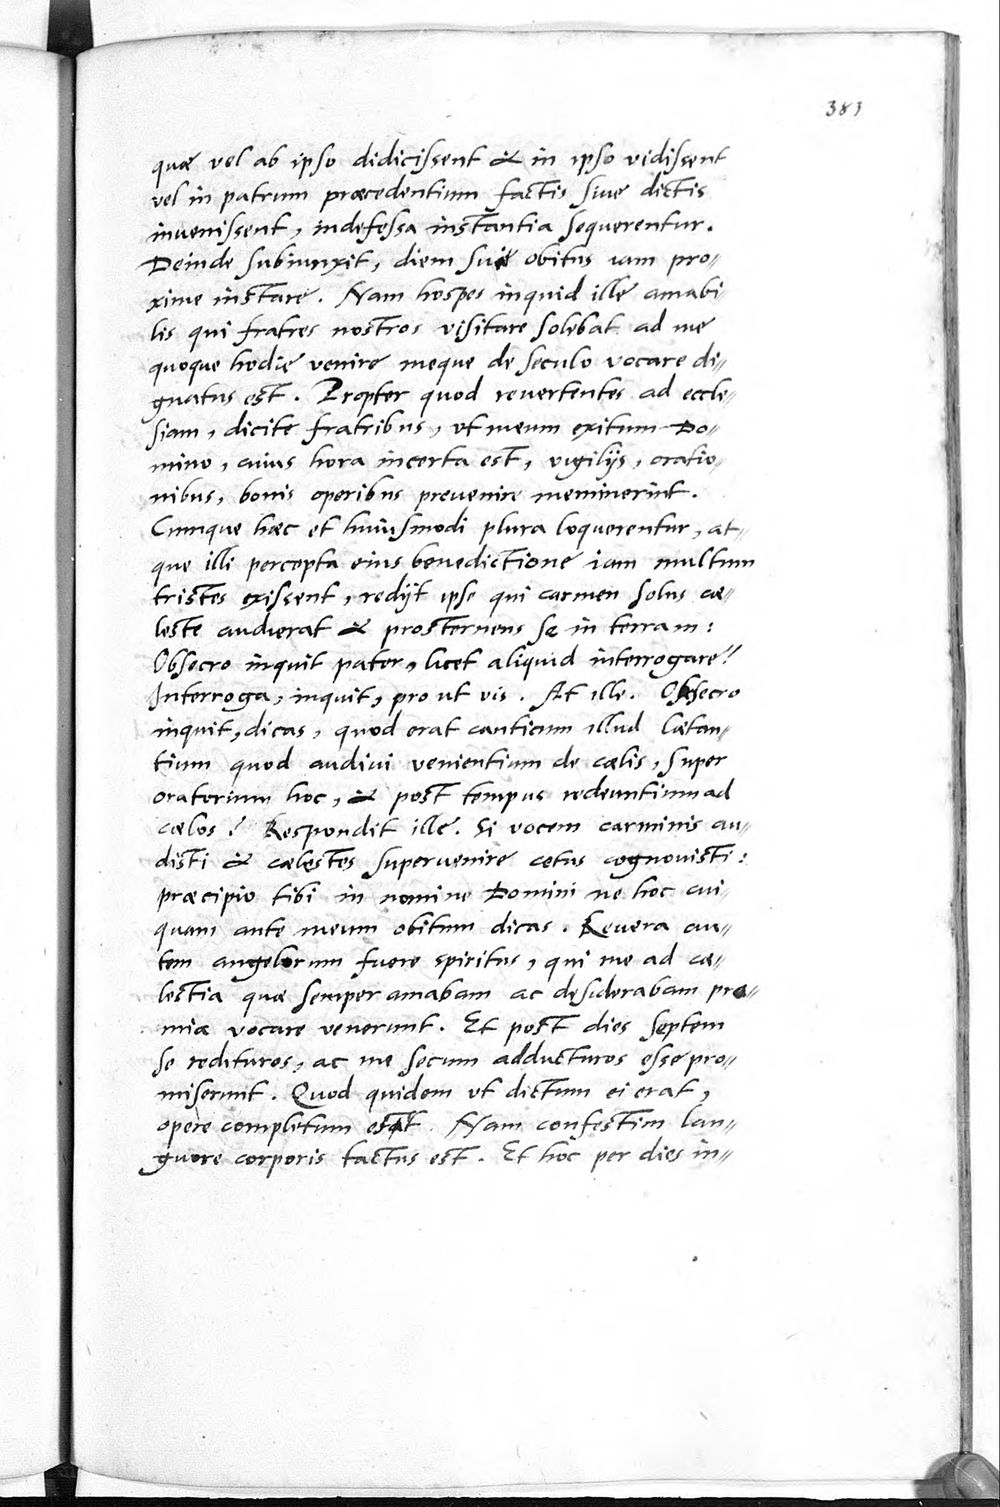 383
quæ vel ab ipso didicissent & in ipso vidissent
vel in patrum præcedentium factis siue dictis
inuenissent, indefessa instantia sequerentur.
Deinde subiunxit, diem sui obitus iam pro„
xime instare. Nam hospes inquid ille amabi„
lis qui fratres nostros visitare solebat ad me
quoque hodie venire meque de seculo vocare di„
gnatus est. Propter quod reuertentes ad eccle„
siam, dicite fratribus, vt meum exitum Do„
mino, cuius hora incerta est, vigilijs, oratio„
nibus, bonis operibus preuenire meminerint.
Cumque hæc et huiusmodi plura loquerentur, at„
que illi percepta eius benedictione iam multum
tristes exissent, redijt ipse qui carmen solus cæ„
leste audierat & prosternens se in terram:
Obsecro inquit pater, licet aliquid interrogare?
Interroga, inquit, pro ut vis. At ille. Obsecro
inquit, dicas, quod erat canticum illud lætan„
tium quod audiui venientium de cælis, super
oratorium hoc, & post tempus redeuntium ad
cælos? Respondit ille. Si vocem carminis au„
disti & cælestes superuenire cetus cognouisti:
præcipio tibi in nomine Domini ne hoc cui„
quam ante meum obitum dicas. Reuera au„
tem angelorum fuere spiritus, qui me ad cæ„
lestia quæ semper amabam ac desiderabam præ„
mia vocare venerunt. Et post dies septem
se redituros, ac me secum adducturos esse pro„
miserunt. Quod quidem vt dictum ei erat,
opere completum est. Nam confestim lan„
guore corporis tactus est. Et hoc per dies in„